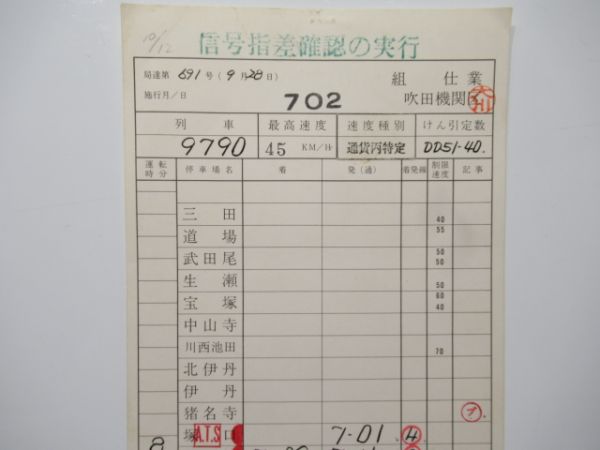 10/12
信号指差確認の実行
局達第 691号 (9月28日) 組 仕業
施行月/日 702 吹田機関区
列車 最高速度 速度種別 けん引定数
9790 45 KM/H 通貨丙特定 DD51-40.
運転時分 停車場名 着 発(通) 着発線 制限速度 記事
三田 40
道場 55
武田尾 50 50
生瀬 50
宝塚 60 40
中山寺
川西池田 70
北伊丹
伊丹
猪名寺
塚口 A.T.S 7-01 4
8